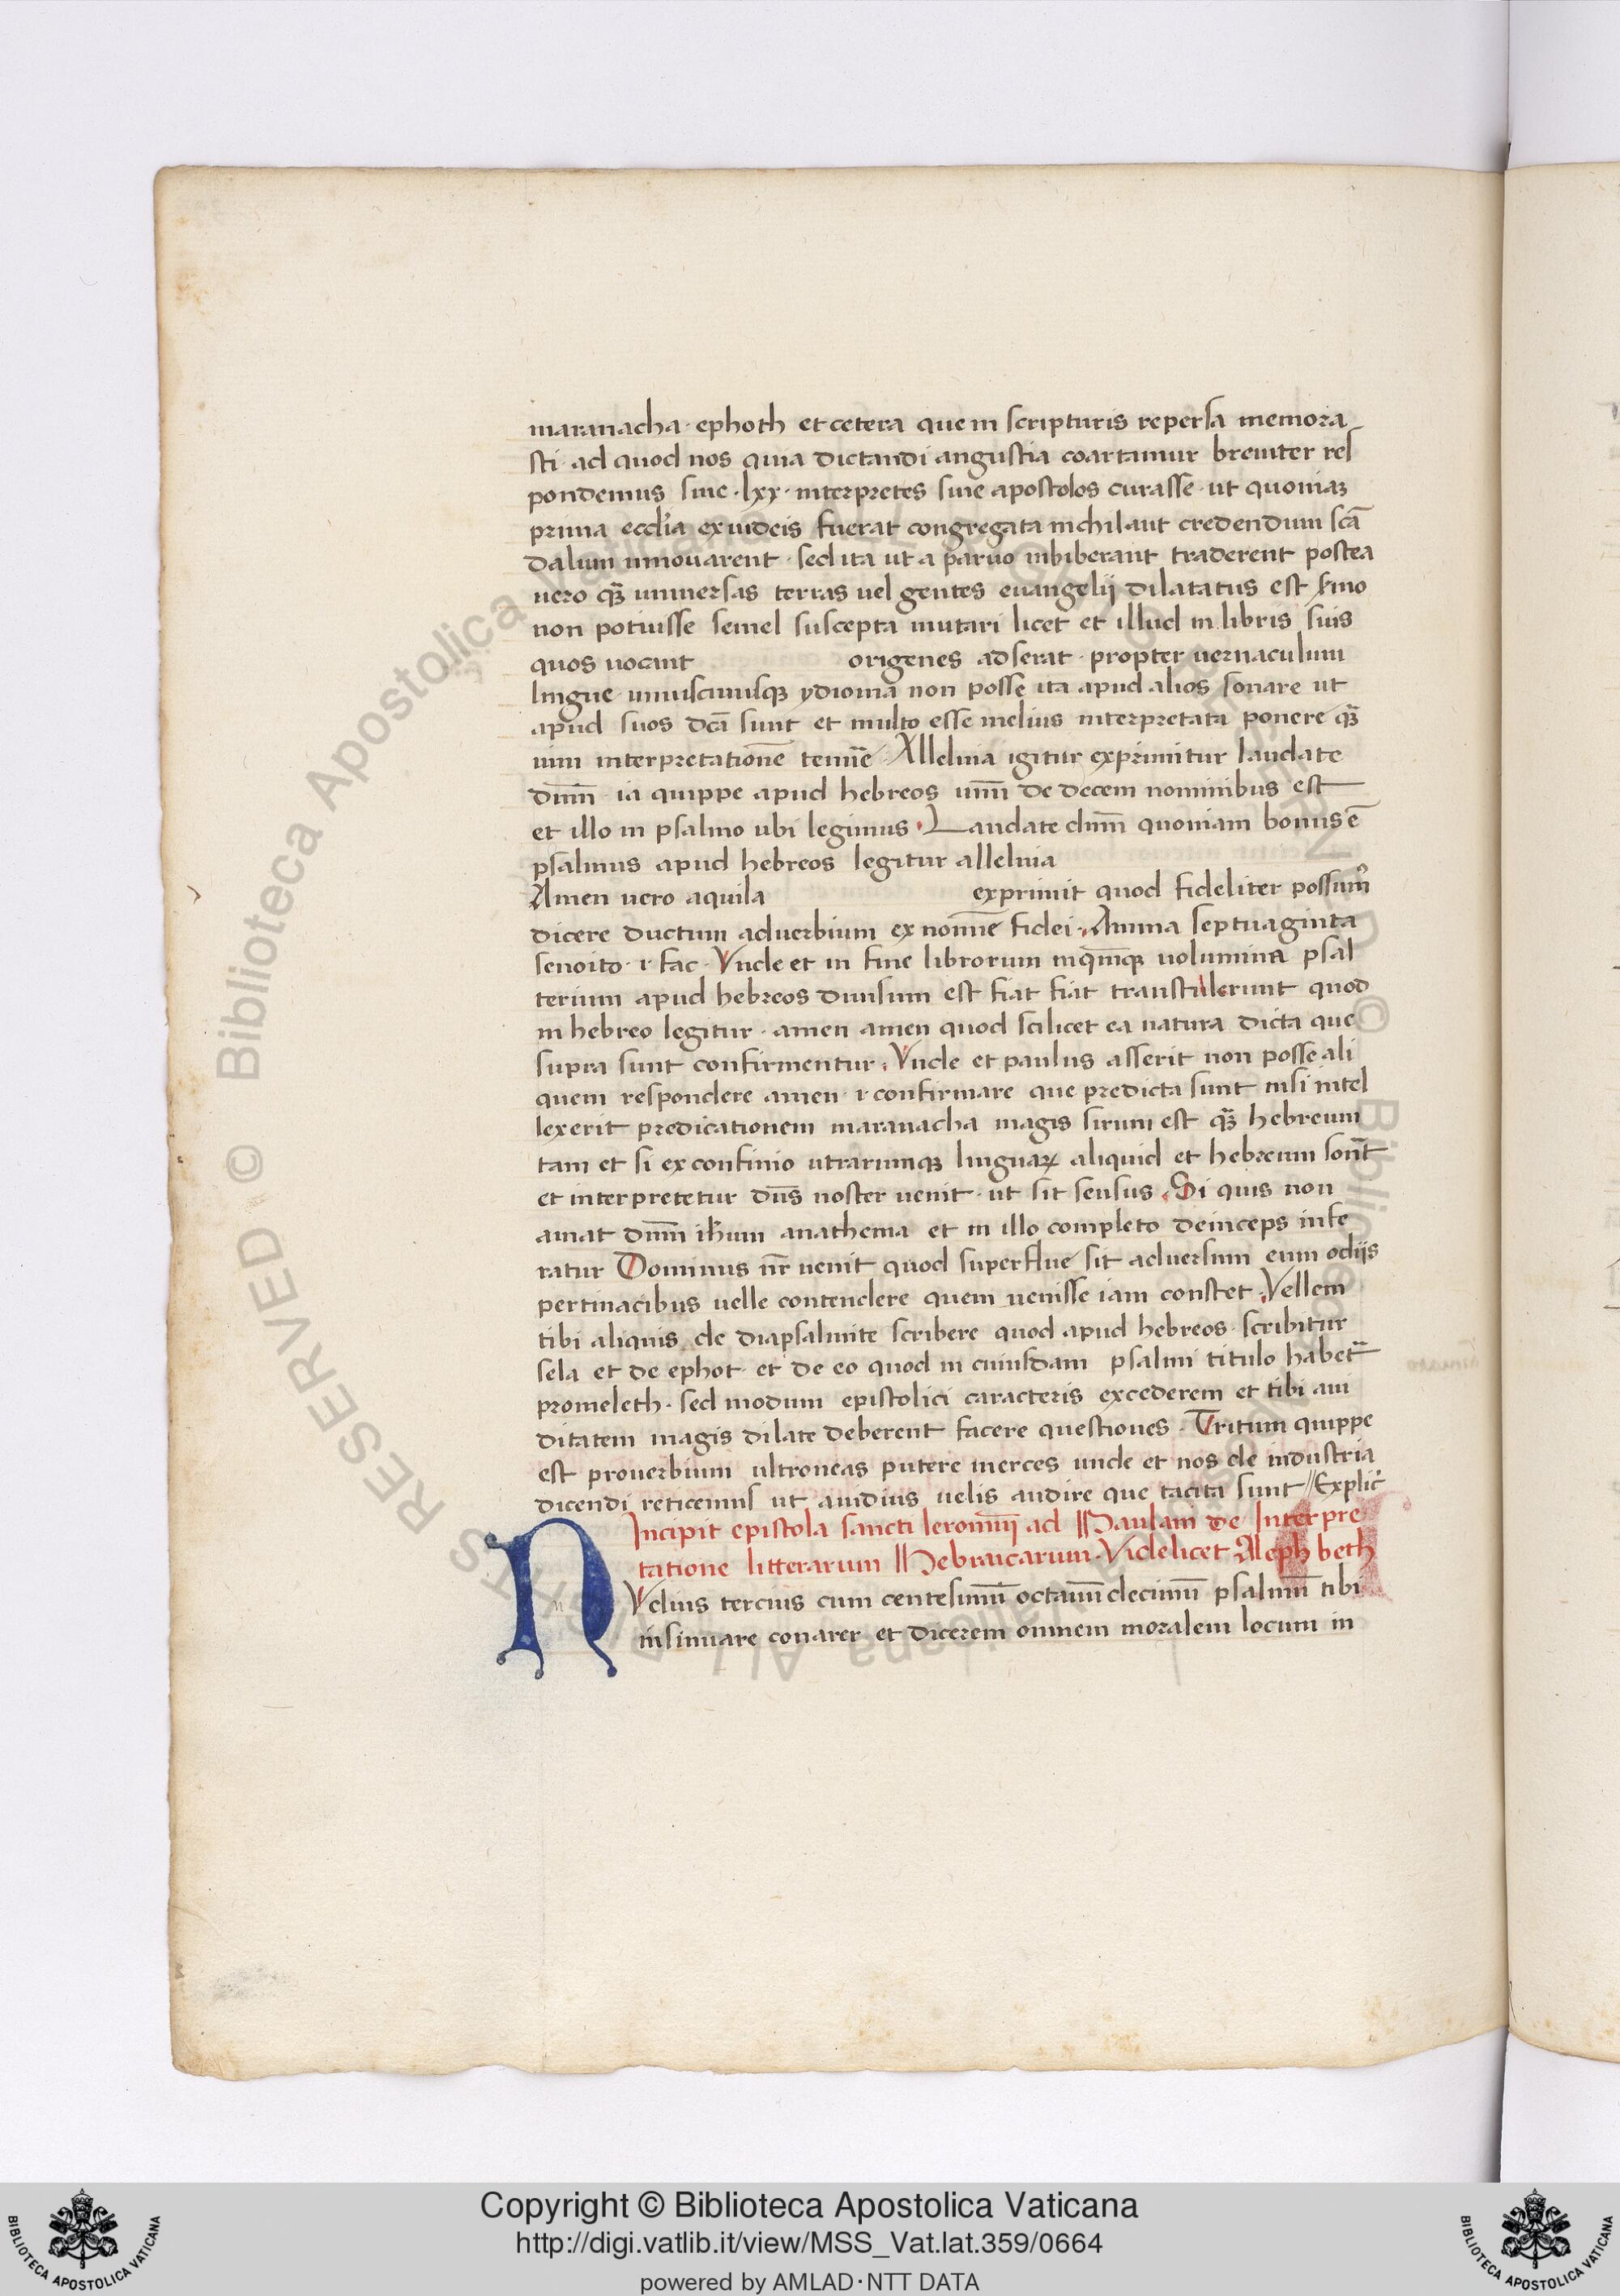 maranacha · ephoth et cetera que in scripturis repersa memora
sti · ad quod nos quia dictandi angustia coartamur breuiter res
pondemus siue · lxx · interpretes siue apostolos curasse · ut quoniaꝫ
prima eccl'ia ex iudeis fuerat congregata nichil aut credendum scā
dalum innouarent · sed ita ut a paruo inbiberant traderent postea
uero qꝫ̄ uniuersas terras uel gentes euangelij dilatatus est
non potuisse semel suscepta mutari licet et illud in libris suis
quos uocant origenes adserat · propter uernaculum
lingue uniuscuiusqꝫ ydioma non posse ita apud alios sonare ut
apud suos dcā sunt et multo esse melius interpretata ponere qꝫ̄
uim interpretationē Alleluia igitur exprimitur laudate
dūm ia quippe apud hebreos unū de decem nominibus est
et illo in psalmo ubi legimus · Laudate dnm̄ quoniam bonus ē
psalmus apud hebreos legitur alleluia
Amen uero aquila exprimit quod fideliter possum9
dicere ductum aduerbium ex nomīe fidei · Amma septuaginta
senoito · i fac · Vnde et in fine librorum inqm̄qꝫ uolumina psal
terium apud hebreos diuisum est fiat fiat transtulerunt quod
in hebreo legitur · amen amen quod scilicet ea natura dicta que
supra sunt confirmentur · Vnde et paulus asserit non posse ali
quem respondere amen · i confirmare que predicta sunt nisi intel
lexerit predicationem maranacha magis sirum est qꝫ̄ hebreum
tam et si ex confinio utrarumqꝫ linguaꝝ aliquid et hebreum sonēt
et interpretetur dn̄s noster uenit · ut sit sensus · Si quis non
amat dnm̄ ihūm anathema et in illo completo deinceps infe
ratur Dominus nr̄ uenit quod superflue sit aduersum eum odijs
pertinacibus uelle contendere quem uenisse iam constet · Vellem
tibi aliquis de diapsalmite scribere quod apud hebreos scribitur
sela et de ephot · et de eo quod in cuiusdam psalmi titulo habet᷑
promeleth · sed modum epistolici caracteris excederem et tibi aui
ditatem magis dilate deberent facere questiones · Tritum quippe
est prouerbium ultroneas putere merces unde et nos de industria
dicendi reticemus ut auidius uelis audire que tacita sunt // Explic̄
Incipit epistola sancti Ieronimi ad Paulam de Interpre
tatione litterarum Hebraicarum · Videlicet Aleph beth
NVdius tercius cum centesimū octauū decimū psalmū tibi
insinuare conarer et dicerem omnem moralem locum in
© Biblioteca Apostolica Vaticana ALL RIGHTS RESERVED
Copyright © Biblioteca Apostolica Vaticana
http://digi.vatlib.it/view/MSS_Vat.lat.359/0664
powered by AMLAD · NTT DATA
BIBLIOTECA APOSTOLICA VATICANA
BIBLIOTECA APOSTOLICA VATICANA